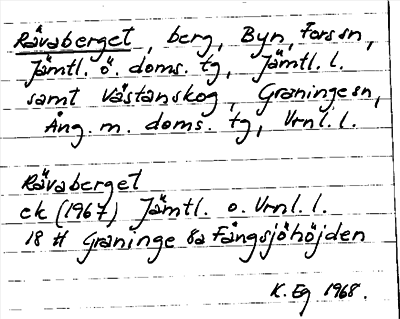 Rävaberget, berg, Byn, Fors sn,
Jämtl. ö. doms. tg, Jämtl. l.
samt Västanskog, Graninge sn,
Ång. m. doms. tg, Vrnl. l.
Rävaberget
ek (1967) Jämtl. o. Vrnl. l.
18 H Graninge 8a Fångsjöhöjden
K. Eg 1968.